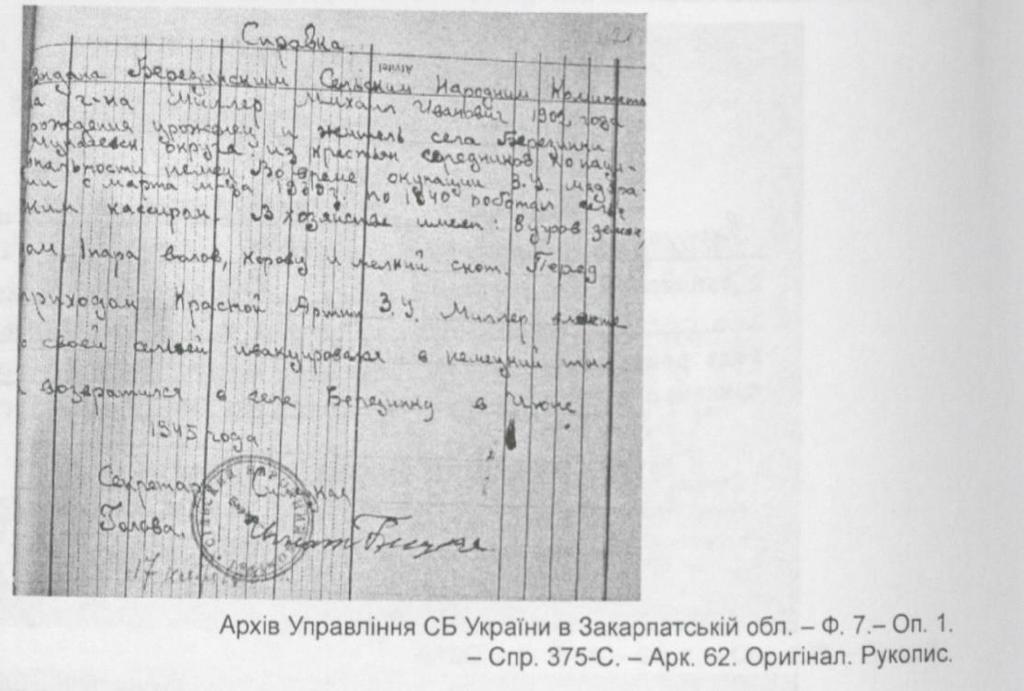 Справка
Березинским Сельским Народным Комитето
на г-на Миллер Михаил Иванович 1902 года
рождения уроженец и житель села Березинки
округа из крестьян середников по наци-
нальности немец Во время окупации З.У. мадяра-
ми с марта м-ца по 1940 работал
ким кассиром. В хозяйстве имел: 8 угров земли,
ом, 1 пара валов, корову и мелкий скот. Перед
приходом Красной Армии З.У. Миллер вместе
со своей семьей ивакуировался в немецкий тыл
и возвратился в село Березинку в Июне
1945 года.
Секретарь
Голова.
17
Архів Управління СБ України в Закарпатській обл. – Ф. 7.– Оп. 1.
– Спр. 375-С. – Арк. 62. Оригінал. Рукопис.